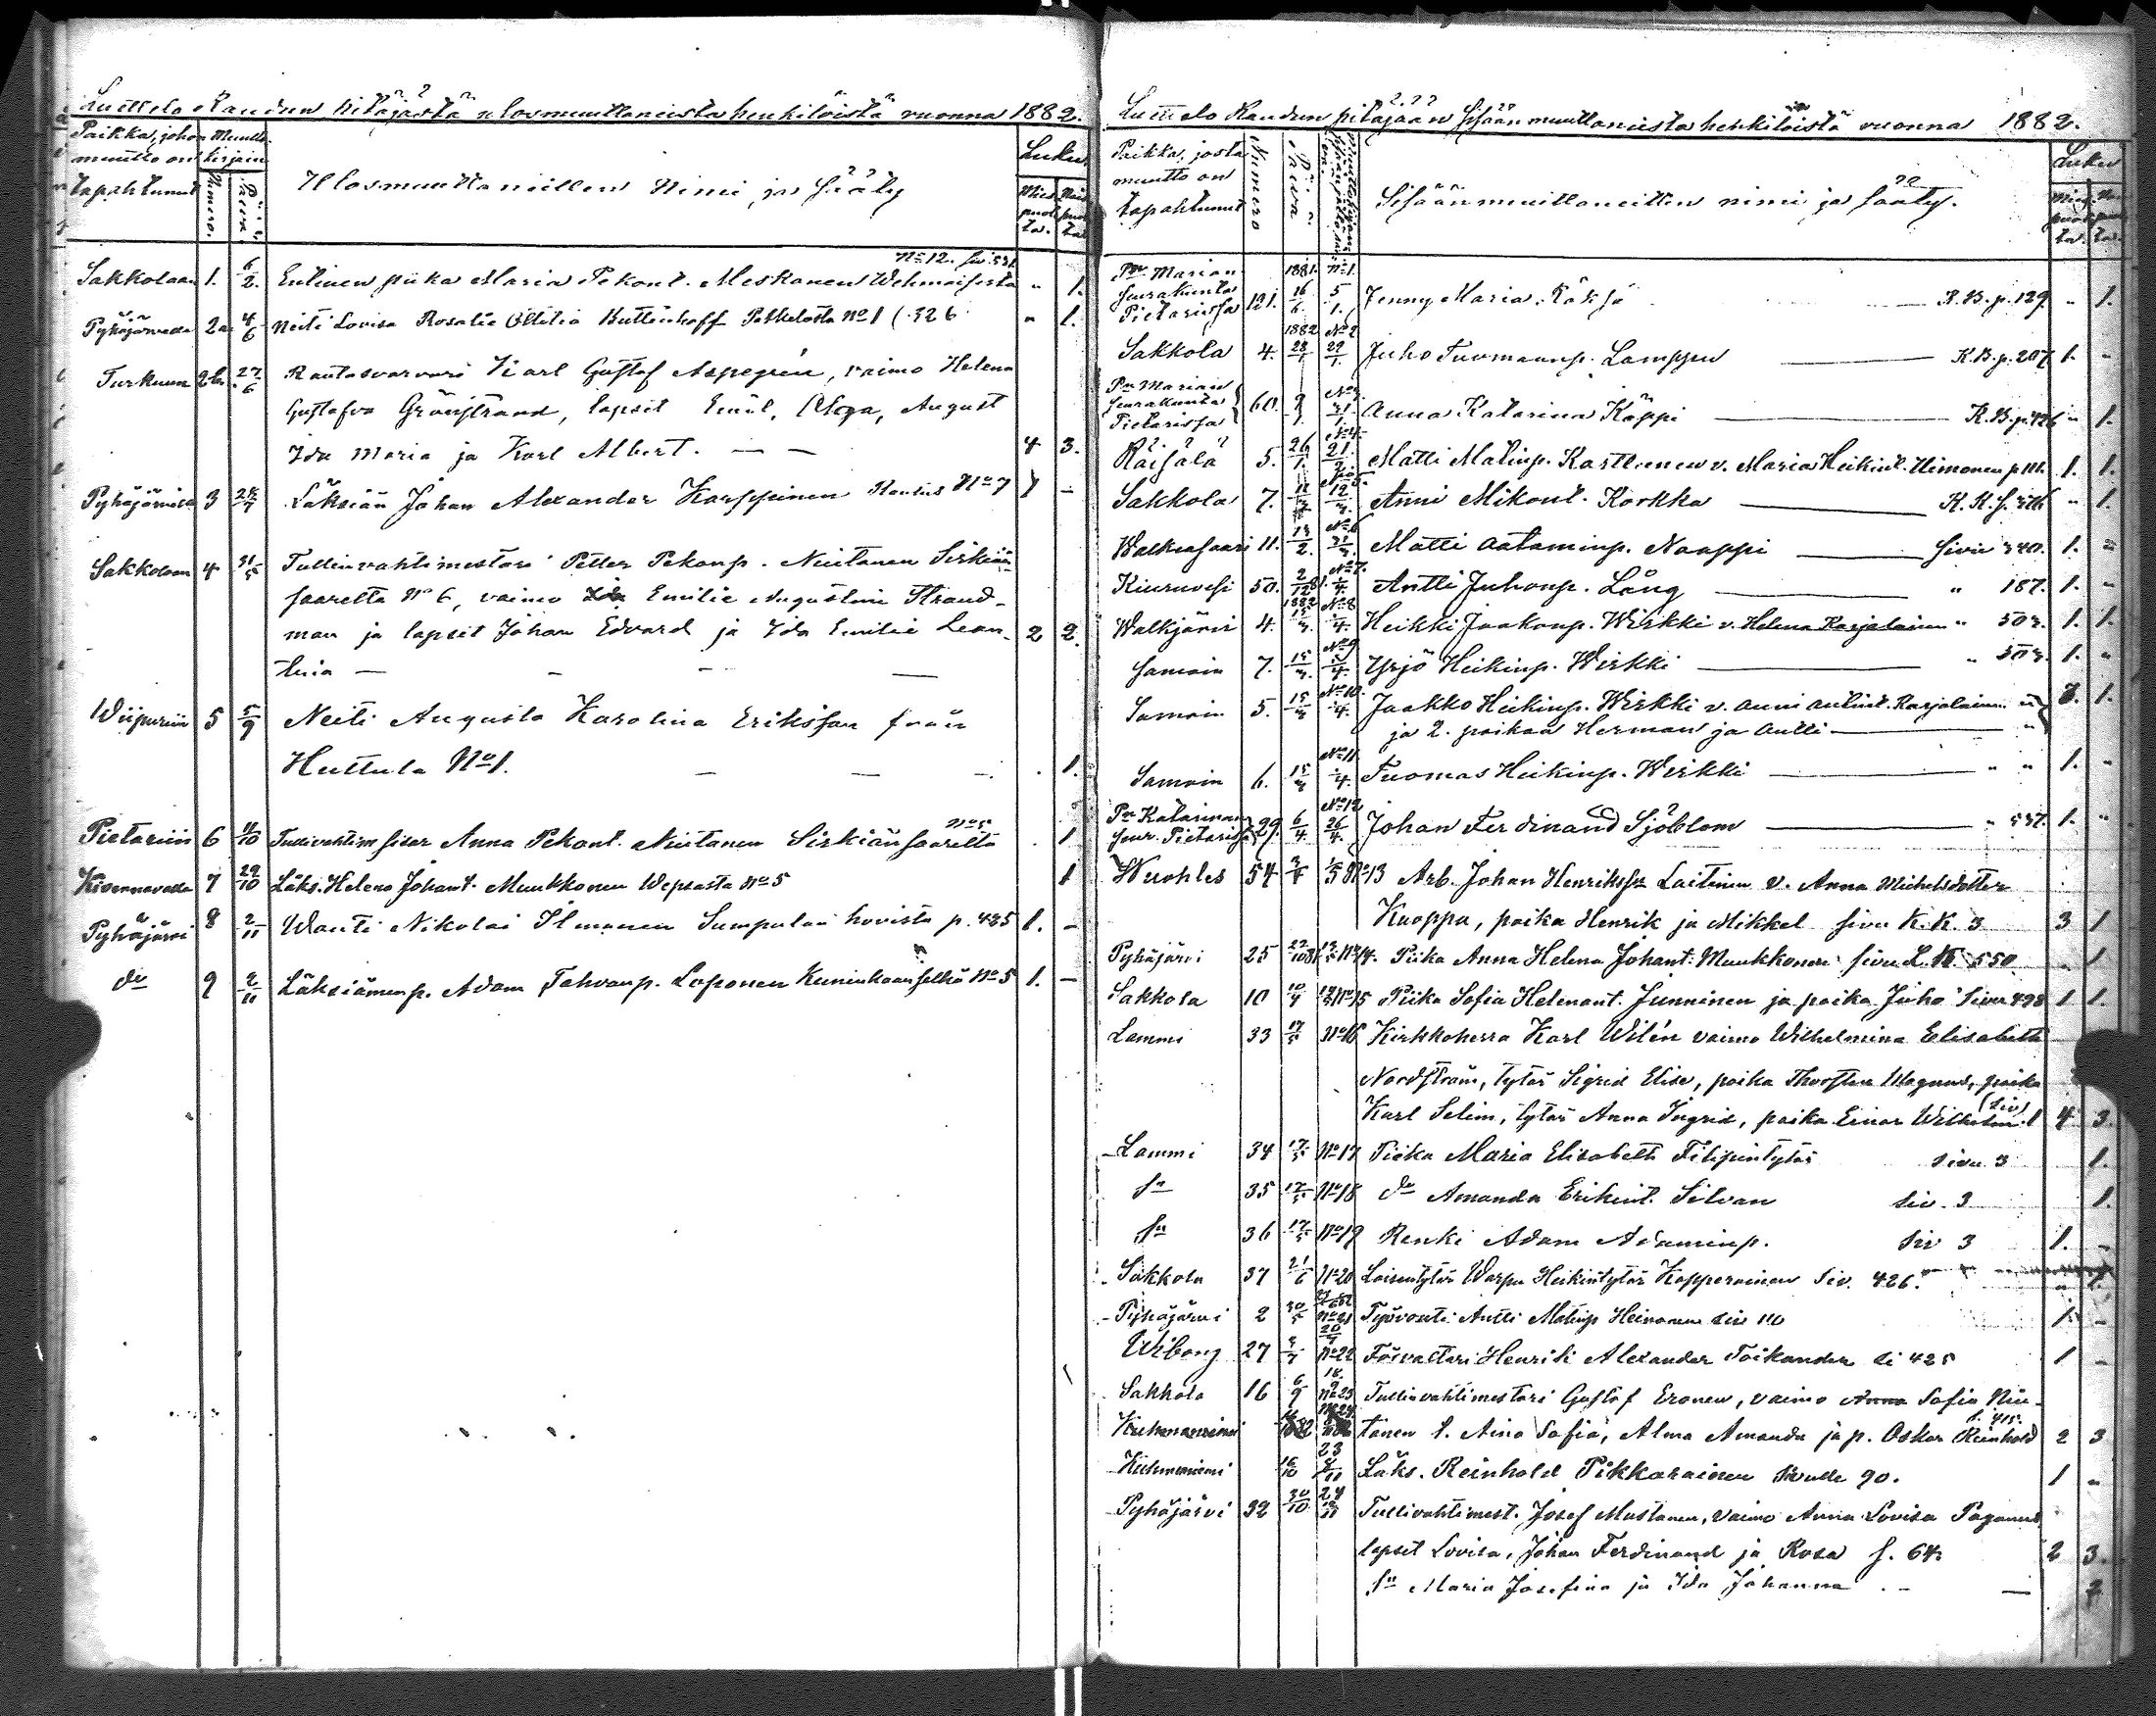 Luettelo Raudun pitäjästä ulosmuuttaneista henkilöistä vuonna 1882.
Paikka, johon muutto on tapahtunut
Muuttokirjain
Numero.
Päivä
Ulosmuuttaneitten Nimi ja Sääty
Luku
Miespuolta.
Naispuolta
No 12. siv. 531
Sakkolaan 1. 6/2. Entinen piika Maria Pekant. Meskanen Wehmaisesta " 1.
Pyhäjärvelle 2a 4/6 Neiti Lovisa Rosalie Ottilia Huttenhoff No 1 (. 326 " 1.
Turkuun 2b. 27/6 Rautasorvari Karl Gustaf Aspegrén, vaimo Helena
Gustafva Grönstrand, lapset Emil, Olga, August
Ida Maria ja Karl Albert. — — 4 3.
Pyhäjärvelle 3 28/7 Läksiän Johan Alexander Karppinen Rautus No 7 1 -
Sakkolaan 4 31/5 Tullivahtimestari Petter Pekanp. Niitanen Sirkiän-
saarelta No 6, vaimo Emilie Augustine Strand-
man ja lapset Johan Edvard ja Ida Emilie Lean- 2 2.
tuia — - - —
Wiipuriin 5 5/9 Neiti Augusta Karolina Eriksson från
Huttula No 1. — — - . 1.
No 5
Pietariin 6 11/10 Tullivahtim sisar Anna Pekant. Niitanen Sirkiänsaarelta . 1
Kivennavalle 7 29/10 Läks. Helena Johant. Muukkonen Wepsasta No 5 1
Pyhäjärvi 8 2/11 Wouti Nikolai Ilmonen Sumpulan hovista p. 485 1. -
do 9 2/11 Läksiämenp. Adam Tahvanp. Loponen Kuninkaanselkä No 5 1. -
Luettelo Raudun pitäjään Sisäänmuuttaneista henkilöistä vuonna 1882.
Paikka, josta muutto on tapahtunut
Numero
Päivä
Sisäänmuuttaneitten nimi ja sääty.
Luku
Miespuolta.
Pn Marian 1881. No 1.
seurakunta
Pietarissa 121. 16/6. 5/1. Jenny Maria Räksä — R.B.p. 129. " 1.
1882 No 2
Sakkola 4. 28/1 29/1. Juho Tuomaanp. Lamppu — K.B.p. 207. 1. "
Pn Marian
seurakunta
Pietarissa 60. Anna Katarina Käppi — K.B.p. 426 " 1.
No 4.
Räisälä 5. 26/1. 21. Matti Matinp. Kasttrenen v. Maria Heikint. Himonen p. 1. 1.
Sakkola 7. Anni Mikont. Korkka — K.K.s. " 1.
No 6
Walkiasaari 11. 13/2. Matti Aataminp. Naappi — Sivu 340. 1. "
No 7.
Kiuruvesi 50. 2/12 81. Antti Juhonp. Lång — " 187. 1. "
1882 No 8
Walkjärvi 4. 15/3. Heikki Jaakonp. Wirkki v. Helena Karjalainen " 503. 1. 1.
No 9
Samoin 7. 15/3. Yrjö Heikinp. Wirkki — " 503. 1. "
No 10.
Samoin 5. 15/3 Jaakko Heikinp. Wirkki v. Anni Antint. Karjalainen " 3. 1.
ja 2. poikaa Herman ja Antti — "
No 11
Samoin 6. 15/3 Tuomas Heikinp. Wirkki — " " 1. "
Pn Katarinan No 12
seur. Pietarissa 29. 6/4. 26/4. Johan Ferdinand Sjöblom — " 537. 1. "
Wuohles 54 No 13 Arb. Johan Henriksson Laitinen v. Anna Michelsdotter
Kuoppa, poika Henrik ja Mikkel sivu K.K. 3 3 1
Pyhäjärvi 25 No 14. Piika Anna Helena Johant. Muukkonen sivu L.K. 550 " 1
Sakkola 10 No 15 Piika Sofia Helenant. Junninen ja poika Juho sivu 498 1 1.
Lammi 33 17/5 No 16 Kirkkoherra Karl Wilén vaimo Wilhelmina Elisabeth
Nordström, tytär Sigrid Elise, poika Thorsten Magnus, poika
Karl Selim, tytär Anna Ingrid, poika Einar Wilhelm (siv) 1 4 3.
Lammi 34 17/5 No 17 Piika Maria Elisabeth Filipintytär sivu 3 1.
sn 35 17/5 No 18 do Amanda Erikint. Silvan siv. 3 1.
sn 36 17/5 No 19 Renki Adam Adaminp. siv 3 1. -
Sakkola 37 21/6 No 20 Loisentytär Warpu Heikintytär Kopperoinen Siv. 426. " 1.
Pyhäjärvi 2 30/5 No 21 Työvouti Antti Matinp Heinonen siv 110 1 -
Wiborg 27 No 22 Förvaltari Henrik Alexander Toikander si 425 1 -
Sakkola 16 6/9 No 23 Tullivahtimestari Gustaf Eronen, vaimo Anna Sofia Nii-
s. 415.
tanen t. Aina Sofia, Alma Amanda ja p. Oskar Reinhold 2 3
Kuhmoniemi 16/10 Läks. Reinhold Pikkarainen sivulle 90. 1 "
Pyhäjärvi 32 30/10 Tullivahtimest. Josef Mustonen, vaimo Anna Lovisa Paganus
lapset Lovisa, Johan Ferdinand ja Rosa s. 64. 2 3.
sn Maria Josefina ja Ida Johanna . - — 2